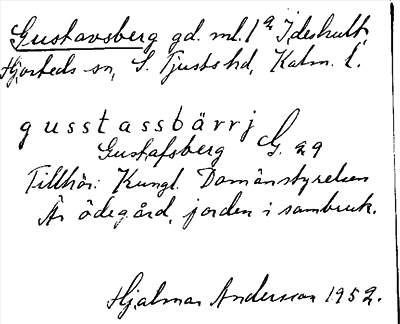 Gustavsberg gd. ml. 1ª Ideshult
Hjorteds sn, S. Tjusts hd, Kalm. l.
gusstassbärrj
Gustafsberg G. 29
Tillhör: Kungl. Domänstyrelsen
Är ödegård, jorden i sambruk.
Hjalmar Andersson 1952.